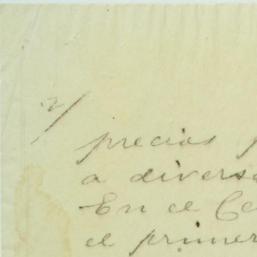 2/
precios p
a divers
En el Ce
el primer